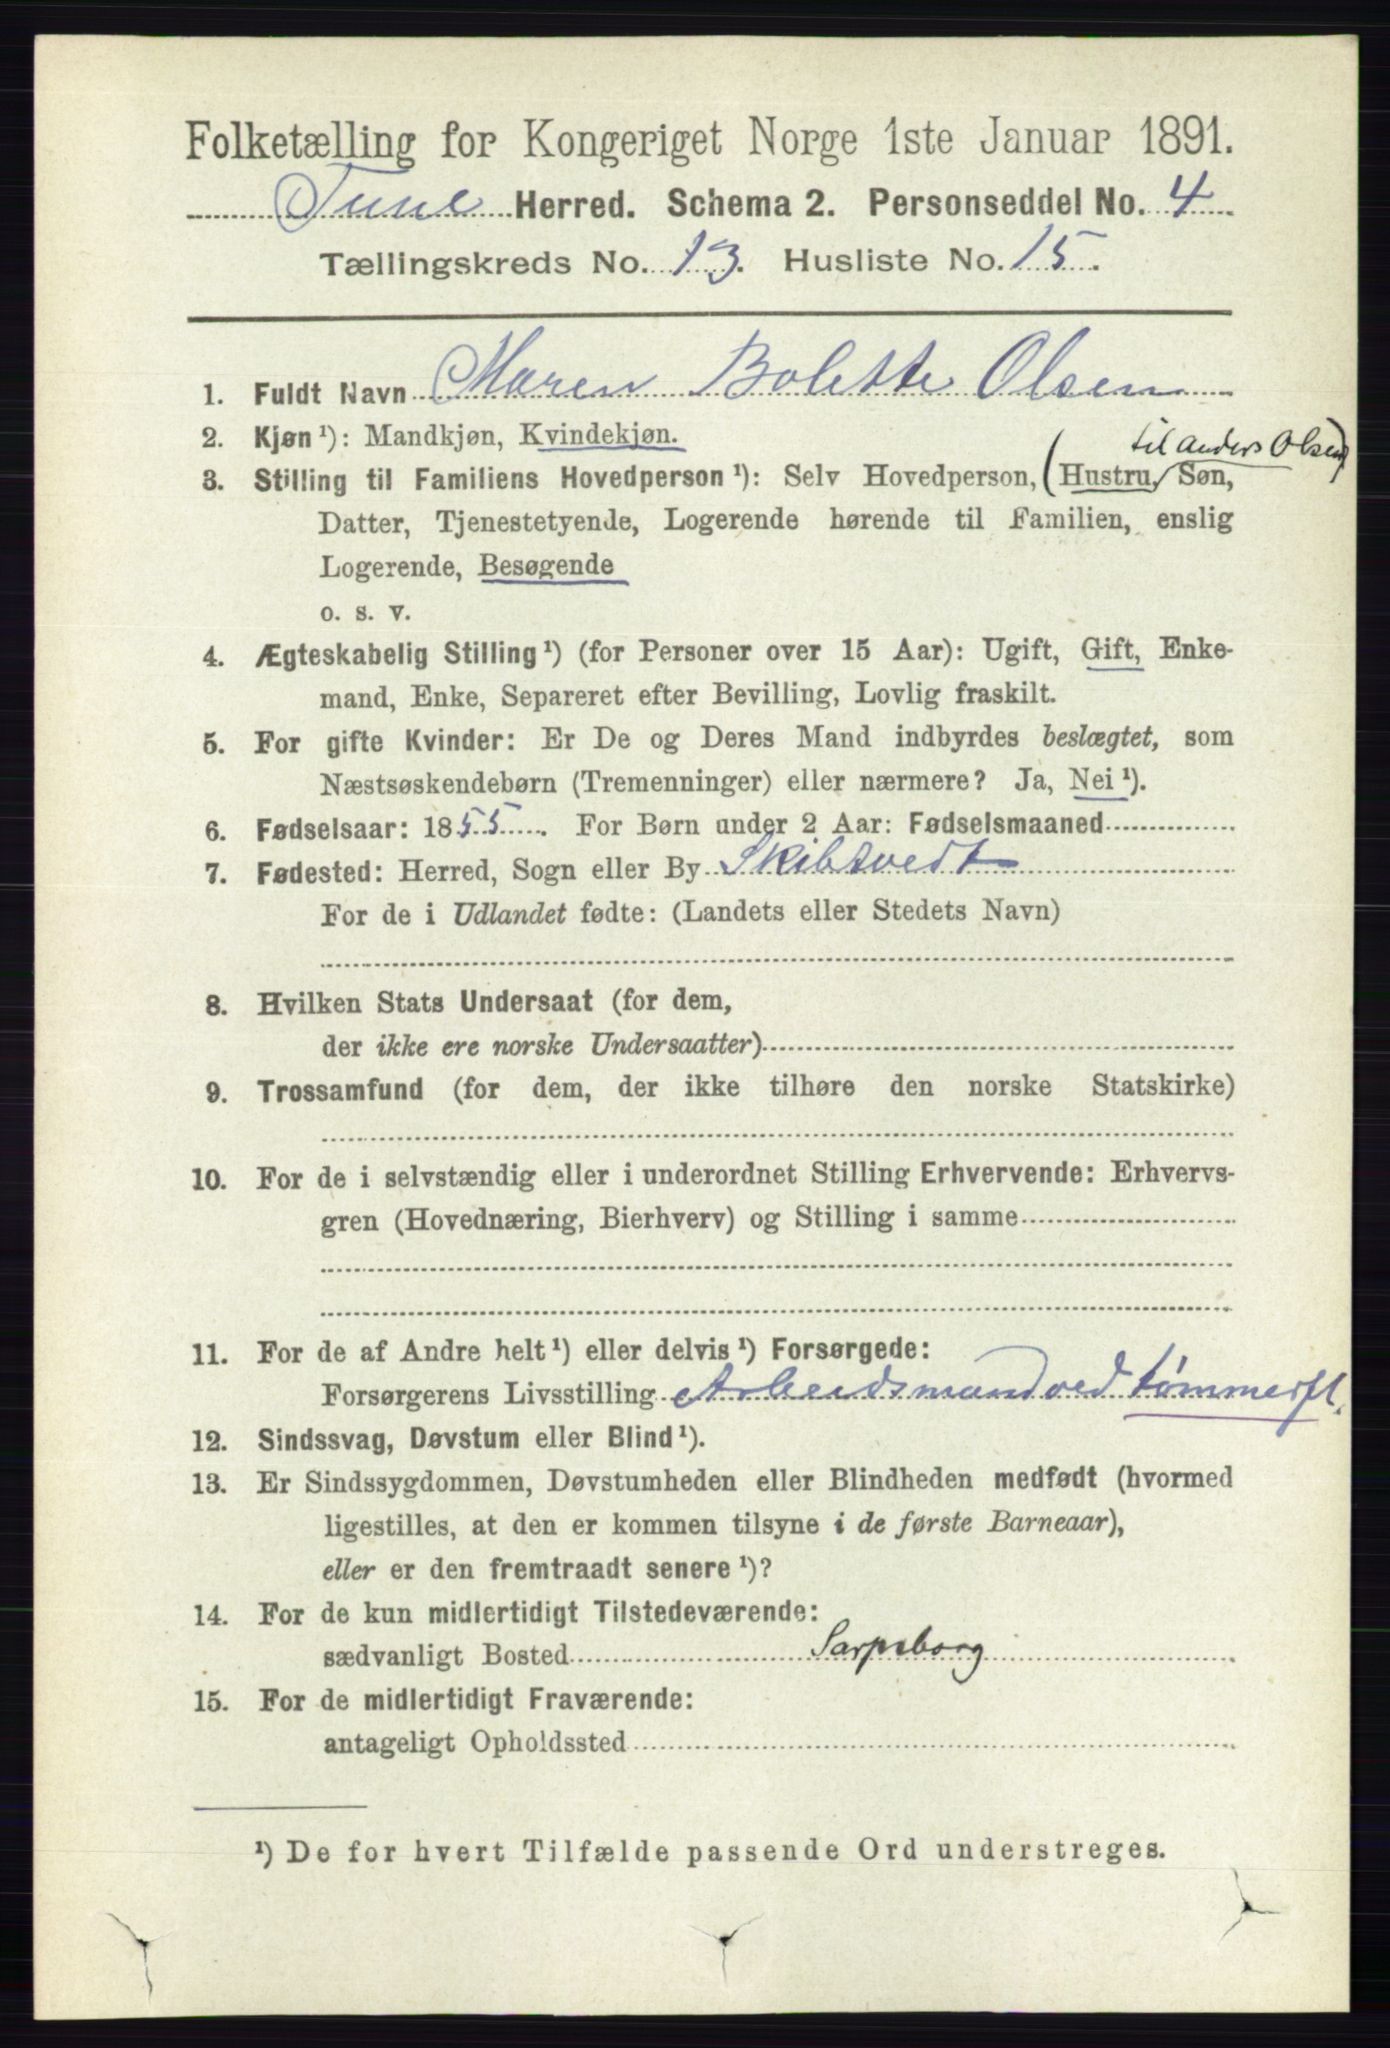 Folketælling for Kongeriget Norge 1ste Januar 1891.
Tune Herred. Schema 2. Personseddel No. 4
Tællingskreds No. 13. Husliste No. 15.
1. Fuldt Navn Maren Bolette Olsen
2. Kjøn ¹): Mandkjøn, Kvindekjøn.
til Anders Olsen)
3. Stilling til Familiens Hovedperson ¹): Selv Hovedperson, (Hustru, Søn,
Datter, Tjenestetyende, Logerende hørende til Familien, enslig
Logerende, Besøgende
o. s. v.
4. Ægteskabelig Stilling ¹) (for Personer over 15 Aar): Ugift, Gift, Enke-
mand, Enke, Separeret efter Bevilling, Lovlig fraskilt.
5. For gifte Kvinder: Er De og Deres Mand indbyrdes beslægtet, som
Næstsøskendebørn (Tremenninger) eller nærmere? Ja, Nei ¹).
6. Fødselsaar: 1855. For Børn under 2 Aar: Fødselsmaaned
7. Fødested: Herred, Sogn eller By Skibtvedt
For de i Udlandet fødte: (Landets eller Stedets Navn)
8. Hvilken Stats Undersaat (for dem,
der ikke ere norske Undersaatter)
9. Trossamfund (for dem, der ikke tilhøre den norske Statskirke)
10. For de i selvstændig eller i underordnet Stilling Erhvervende: Erhvervs-
gren (Hovednæring, Bierhverv) og Stilling i samme
11. For de af Andre helt ¹) eller delvis ¹) Forsørgede:
Forsørgerens Livsstilling Arbeidsmand ved tømmerfl.
12. Sindssvag, Døvstum eller Blind ¹).
13. Er Sindssygdommen, Døvstumheden eller Blindheden medfødt (hvormed
ligestilles, at den er kommen tilsyne i de første Barneaar),
eller er den fremtraadt senere ¹)?
14. For de kun midlertidigt Tilstedeværende:
sædvanligt Bosted Sarpsborg
15. For de midlertidigt Fraværende:
antageligt Opholdssted
¹) De for hvert Tilfælde passende Ord understreges.